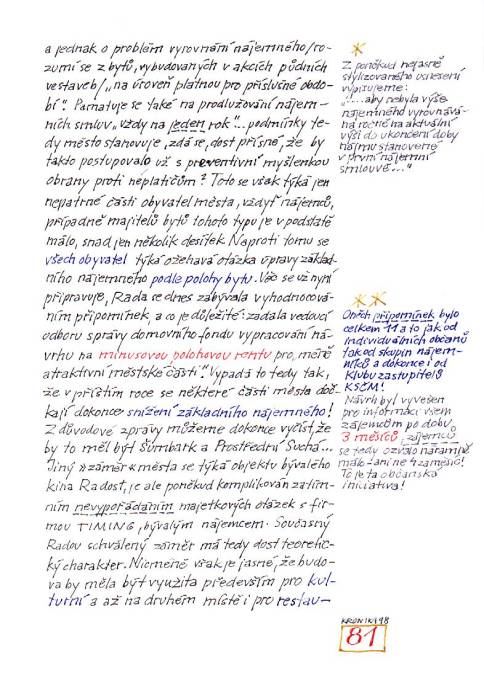 a jednak o problém vyrovnání nájemného/ro-
zumí se z bytů, vybudovaných v akcích půdních
vestaveb/ „na úroveň platnou pro příslušné obdo-
bí“. Pamatuje se také na prodlužování nájem-
ních smluv „vždy na jeden rok“... podmínky te-
dy město stanovuje, zdá se, dost přísné, že by
takto postupovalo už s preventivní myšlenkou
obrany proti neplatičům? Toto se však týká jen
nepatrné části obyvatel města, vždyť nájemců,
případně majitelů bytů tohoto typu je v podstatě
málo, snad jen několik desítek. Naproti tomu se
všech obyvatel týká ožehavá otázka úpravy základ-
ního nájemného podle polohy bytu. Věc se už nyní
připravuje, Rada se dnes zabývala vyhodnocová-
ním připomínek, a co je důležité: zadala vedoucí
odboru správy domovního fondu vypracování ná-
vrhu na minusovou polohovou rentu pro „méně
atraktivní městské části“. Vypadá to tedy tak,
že v příštím roce se některé části města doč-
kají dokonce snížení základního nájemného!
Z důvodové zprávy můžeme dokonce vyčíst, že
by to měl být Šumbark a Prostřední Suchá...
Jiný »záměr« města se týká objektu bývalého
kina Radost, je ale poněkud komplikován zatím-
ním nevypořádáním majetkových otázek s fir-
mou TIMING, bývalým nájemcem. Současný
Radou schválený záměr má tedy dost teoretic-
ký charakter. Nicméně však je jasné, že budo-
va by měla být využita především pro kul-
turní a až na druhém místě i pro restau-
Z poněkud nejasně
stylizovaného usnesení
vypisujeme:
„...aby nebyla výše
nájemného vyrovnává-
na ročně na aktuální
výši do ukončení doby
nájmu stanovené
v první nájemní
smlouvě...“
Oněch připomínek bylo
celkem 11 a to jak od
individuálních občanů
tak od skupin nájem-
níků a dokonce i od
Klubu zastupitelů
KSČM!
Návrh byl vyvěšen
pro informaci všem
zájemcům po dobu
3 měsíců, zájemců
se tedy ozvalo náramně
málo – ani ne 4 za měsíc!
To je ta občanská
iniciativa!
KRONIKA 98
81